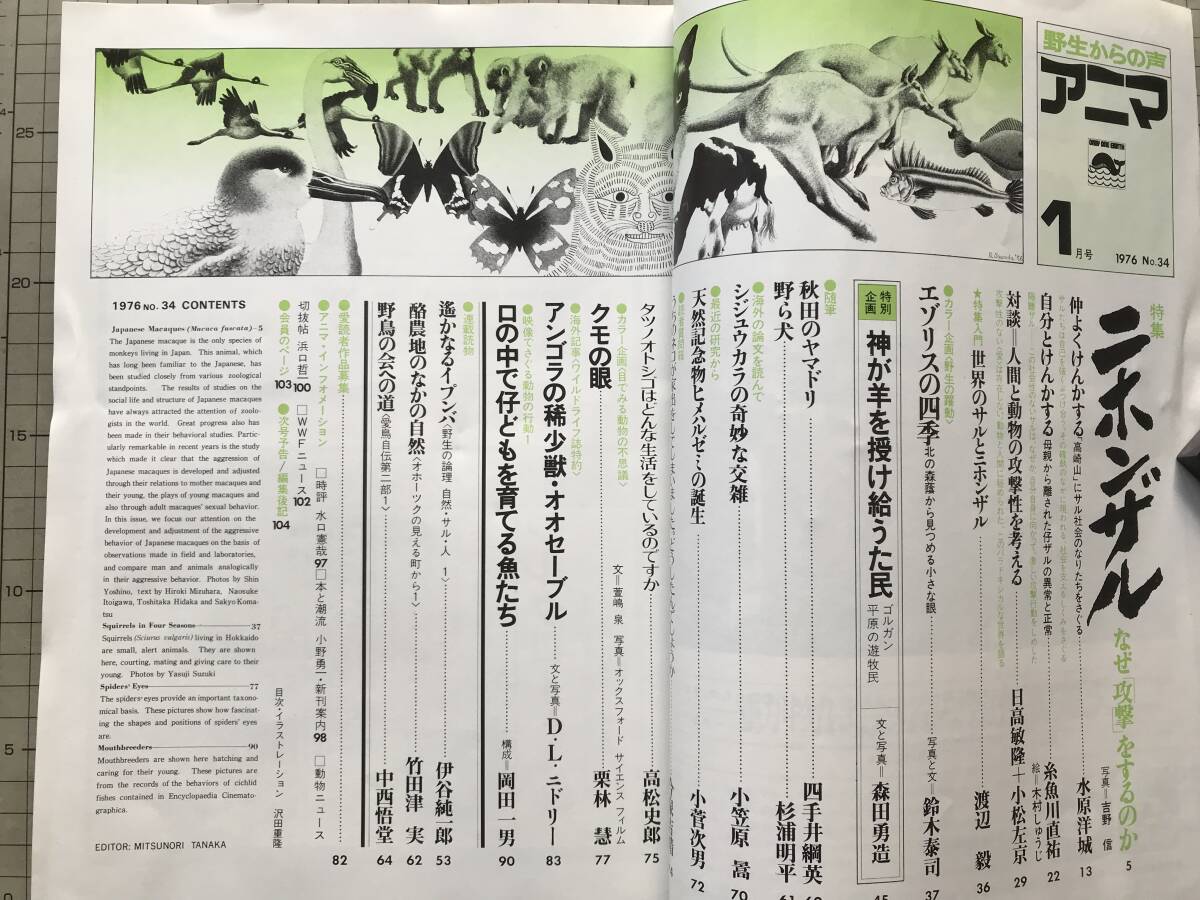 野生からの声
アニマ
ONLY ONE EARTH
1月号
1976 No.34
特集
ニホンザル
なぜ「攻撃」をするのか 5
写真=吉野 信
仲よくけんかする「高崎山」にサル社会のなりたちをさぐる 水原洋城 13
自分とけんかする 母親から離された仔ザルの異常と正常 糸魚川直祐 22
絵=木村しゅうじ
対談=人間と動物の攻撃性を考える 日高敏隆+小松左京 29
★特集入門 世界のサルとニホンザル 渡辺 毅 36
●カラー企画〈野生の躍動〉
エゾリスの四季 北の森蔭から見つめる小さな眼 写真と文=鈴木泰司 37
特別企画
神が羊を授け給うた民 ゴルガン平原の遊牧民 文と写真=森田勇造 45
●随筆
秋田のヤマドリ 四手井綱英
野ら犬 杉浦明平 61
●海外の論文を読んで
シジュウカラの奇妙な交雑 小笠原 暠 70
●最近の研究から
天然記念物ヒメハルゼミの誕生 小菅次男 72
タツノオトシゴはどんな生活をしているのですか 高松史郎 75
●カラー企画〈目でみる動物の不思議〉
クモの眼 文=萱嶋 泉 写真=オックスフォード サイエンス フィルム 栗林 慧 77
●海外記事〈ワイルドライフ誌特約〉
アンゴラの稀少獣・オオセーブル 文と写真=D・L・ニドリー 83
●映像でさぐる動物の行動 1
口の中で仔どもを育てる魚たち 構成=岡田一男 90
●連載読物
遙かなるイブンバ〈野生の論理 自然・サル・人 1〉 伊谷純一郎 53
酪農地のなかの自然〈オホーツクの見える町から 1〉 竹田津 実 62
野鳥の会への道〈愛鳥自伝第二部 1〉 中西悟堂 64
●愛読者作品募集 82
●アニマ・インフォメーション □時評 水口憲哉 97 □本と潮流 小野勇一・新刊案内 98 □動物ニュース
切抜帖 浜口哲一 100 □WWFニュース 102
●会員のページ 103 ●次号予告/編集後記 104
目次・イラストレーション 沢田重隆
1976 NO. 34 CONTENTS
Japanese Macaques (Macaca fuscata)–5
The Japanese macaque is the only species of
monkeys living in Japan. This animal, which
has long been familiar to the Japanese, has
been studied closely from various zoological
standpoints. The results of studies on the
social life and structure of Japanese macaques
have always attracted the attention of zoolo-
gists in the world. Great progress also has
been made in their behavioral studies. Partic-
ularly remarkable in recent years is the study
which made it clear that the aggression of
Japanese macaques is developed and adjusted
through their relations to mother macaques and
their young, the plays of young macaques and
also through adult macaques' sexual behavior.
In this issue, we focus our attention on the
development and adjustment of the aggressive
behavior of Japanese macaques on the basis of
observations made in field and laboratories,
and compare man and animals analogically
in their aggressive behavior. Photos by Shin
Yoshino, text by Hiroki Mizuhara, Naosuke
Itoigawa, Toshitaka Hidaka and Sakyo Koma-
tsu
Squirrels in Four Seasons 37
Squirrels (Sciurus vulgaris) living in Hokkaido
are small, alert animals. They are shown
here, courting, mating and giving care to their
young. Photos by Yasuji Suzuki
Spiders' Eyes 77
The spiders' eyes provide an important taxono-
mical basis. These pictures show how fascinat-
ing the shapes and positions of spiders' eyes
are.
Mouthbreeders 90
Mouthbreeders are shown here hatching and
caring for their young. These pictures are
from the records of the behaviors of cichlid
fishes contained in Encyclopaedia Cinemato-
graphica.
EDITOR: MITSUNORI TANAKA